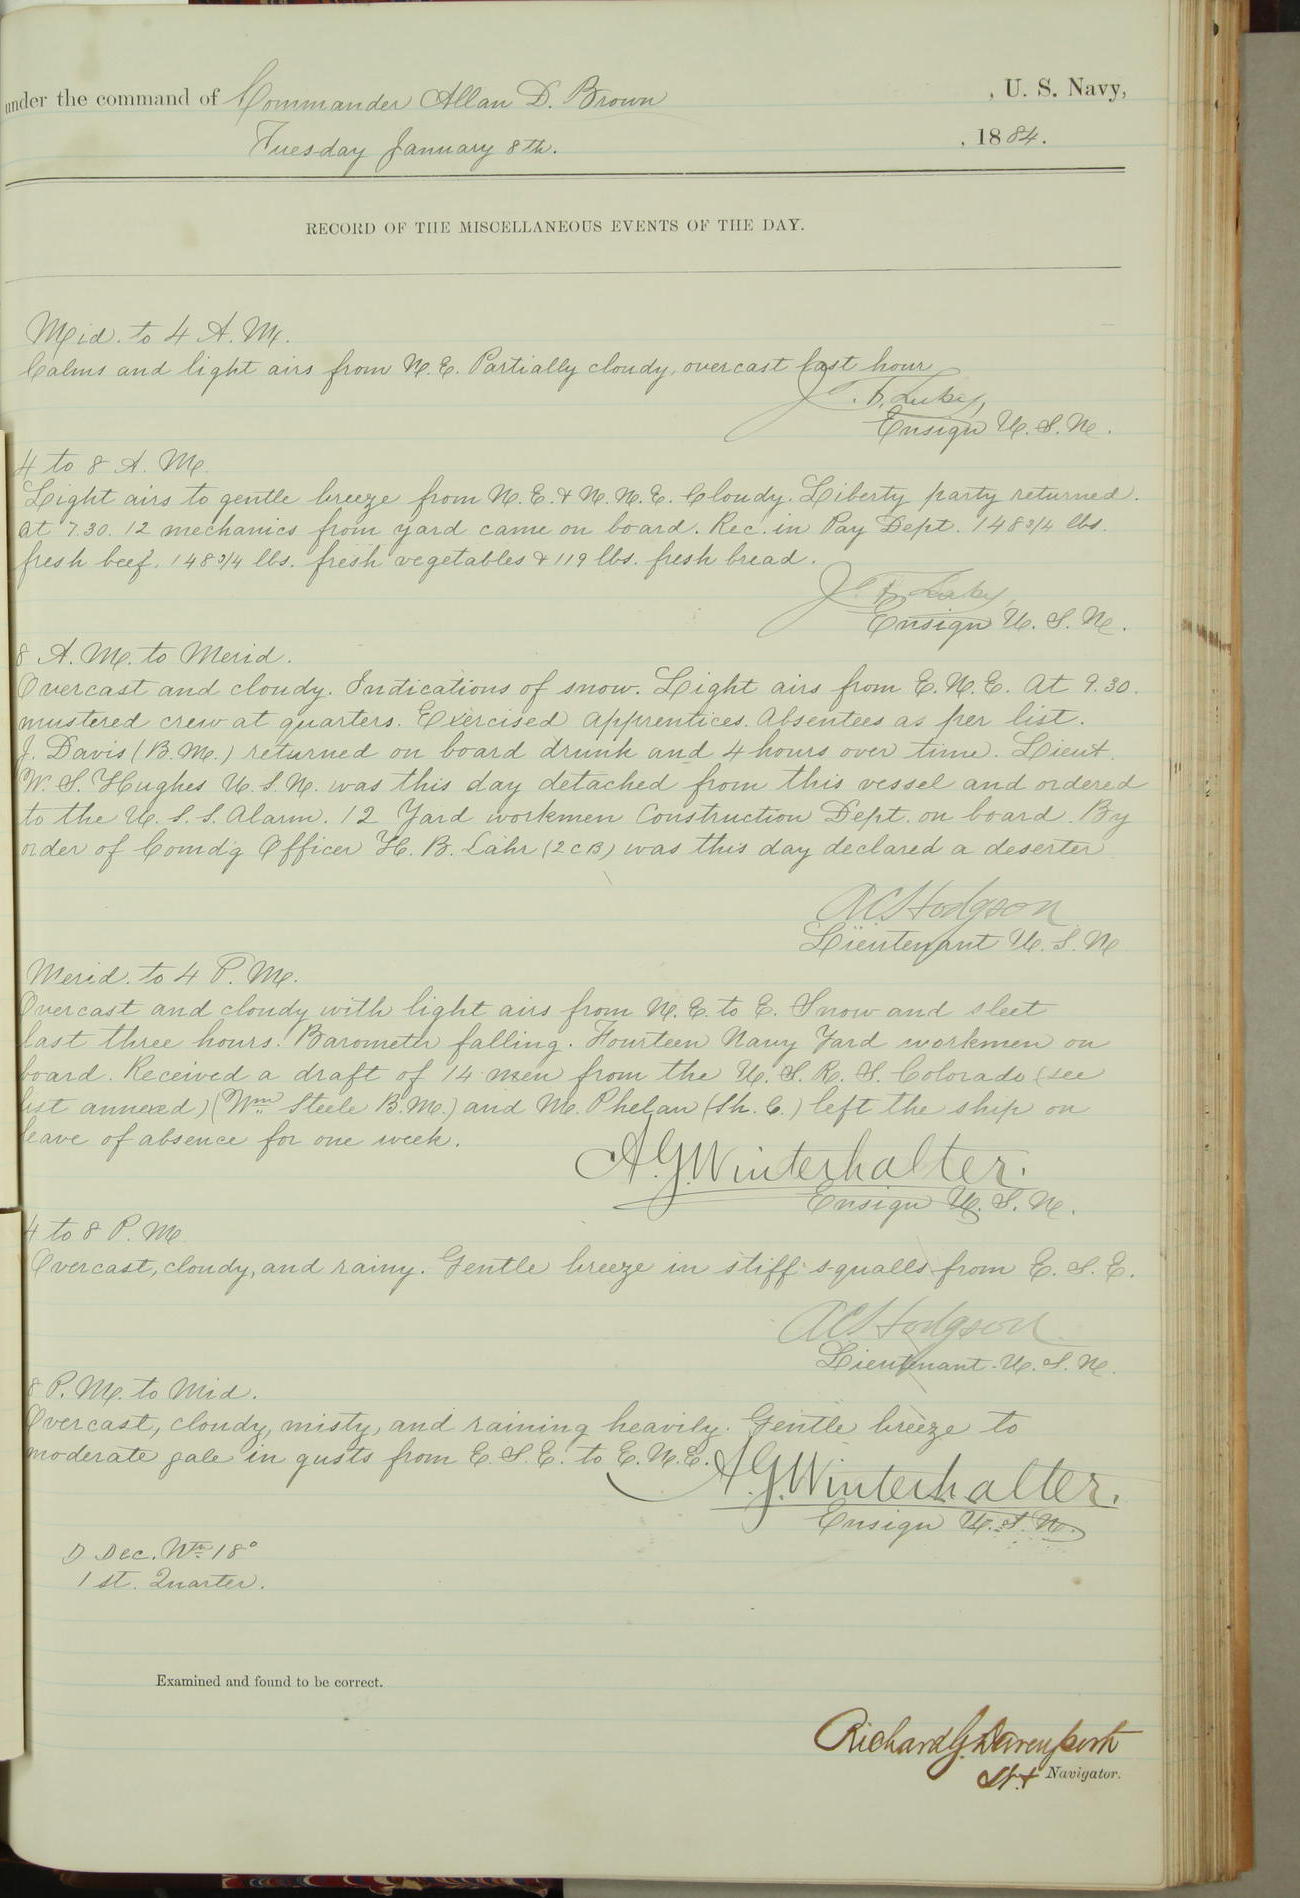 under the command of Commander Allan D. Brown , U. S. Navy,
Tuesday January 8th. , 1884.
RECORD OF THE MISCELLANEOUS EVENTS OF THE DAY.
Mid. to 4 A. M.
Calms and light airs from N. E. Partially cloudy, overcast last hour
J. F. Luby,
Ensign U. S. N.
4 to 8 A. M.
Light airs to gentle breeze from N. E. & N. N. E. Cloudy. Liberty party returned.
At 7.30. 12 mechanics from yard came on board. Rec. in Pay Dept. 148 3/4 lbs.
fresh beef. 148 3/4 lbs. fresh vegetables & 119 lbs. fresh bread.
J. F. Luby,
Ensign U. S. N.
8 A. M. to Merid.
Overcast and cloudy. Indications of snow. Light airs from E. N. E. At 9.30.
mustered crew at quarters. Exercised apprentices. Absentees as per list.
J. Davis (B. M.) returned on board drunk and 4 hours over time. Lieut.
W. S. Hughes U. S. N. was this day detached from this vessel and ordered
to the U. S. S. Alarm. 12 Yard workmen Construction Dept. on board. By
order of Comd'g Officer H. B. Lähr (2 C B) was this day declared a deserter
A C Hodgson
Lieutenant U. S. N
Merid. to 4 P. M.
Overcast and cloudy with light airs from N. E. to E. Snow and sleet
last three hours. Barometer falling. Fourteen Navy Yard workmen on
board. Received a draft of 14 men from the U. S. R. S. Colorado (see
list annexed) (Wm. Steele B. M.) and M. Phelan (Sh. C.) left the ship on
leave of absence for one week.
A. G. Winterhalter.
Ensign U. S. N.
4 to 8 P. M
Overcast, cloudy, and rainy. Gentle breeze in stiff squalls from E. S. E.
A C Hodgson
Lieutenant U. S. N.
8 P. M. to Mid.
Overcast, cloudy, misty, and raining heavily. Gentle breeze to
moderate gale in gusts from E. S. E. to E. N. E.
A. G. Winterhalter.
Ensign U. S. N.
D Dec. Nth 18°
1st. Quarter.
Examined and found to be correct.
Richard G. Davenport
Lt Navigator.